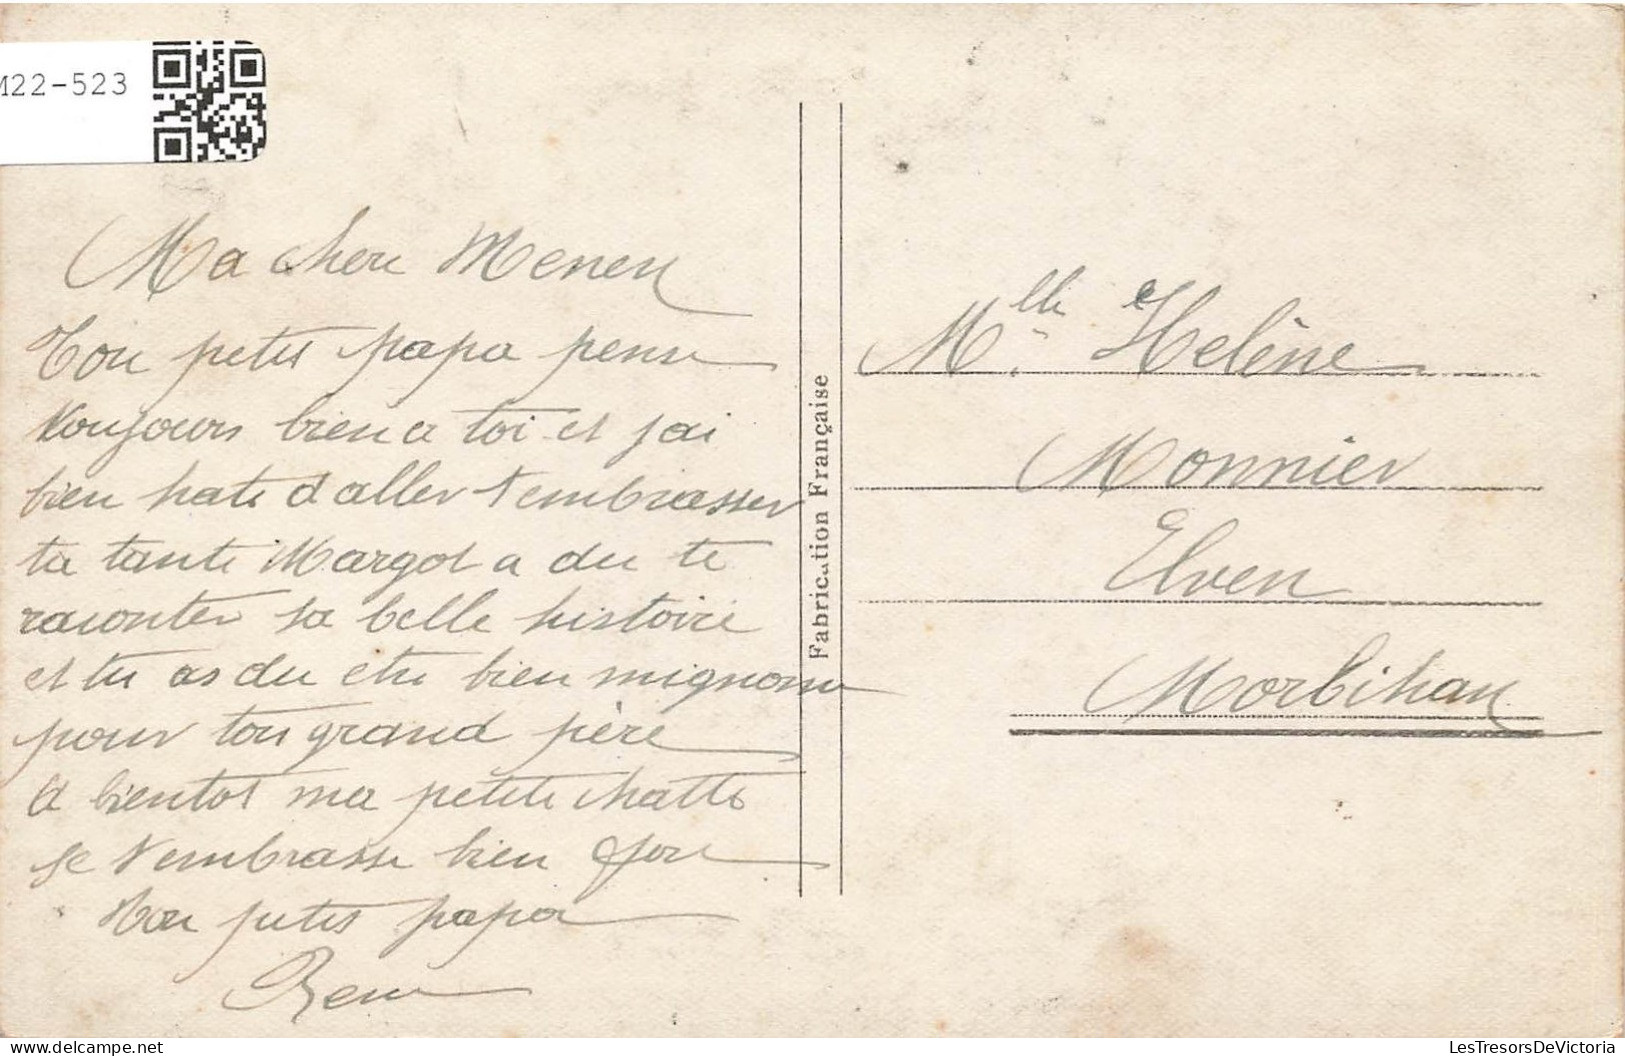 M22-523
Ma chere Menen
Ton petit papa pense
toujours bien a toi et jai
bien hate d aller t embrasser
ta tante Margot a du te
raconter sa belle histoire
et tu as du etre bien mignonne
pour ton grand père
A bientot ma petite chatte
Je t embrasse bien fort
Ton petit papa
René
Fabrication Française
Mlle Helène
Monnier
Elven
Morbihan
LesTresorsDeVictoria